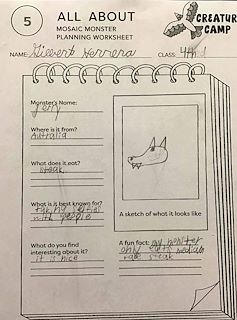 5
ALL ABOUT
MOSAIC MONSTER
PLANNING WORKSHEET
CREATUR
CAMP
NAME: Gilbert Herrera
CLASS: 4th
Monster's Name:
Jerry
Where is it from?
Australia
What does it eat?
steak
What is it best known for?
with people
What do you find
interesting about it?
it is nice
A sketch of what it looks like
A fun fact: my monster
only eats medium
rare steak